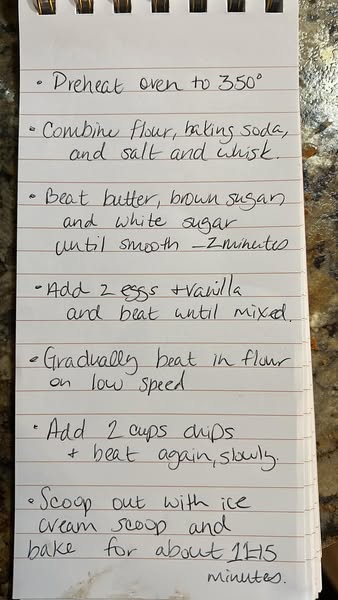 • Preheat oven to 350°
• Combine flour, baking soda,
and salt and whisk.
• Beat butter, brown sugar
and white sugar
until smooth –2 minutes
• Add 2 eggs + vanilla
and beat until mixed.
• Gradually beat in flour
on low speed
• Add 2 cups chips
+ beat again, slowly.
• Scoop out with ice
cream scoop and
bake for about 11-15
minutes.